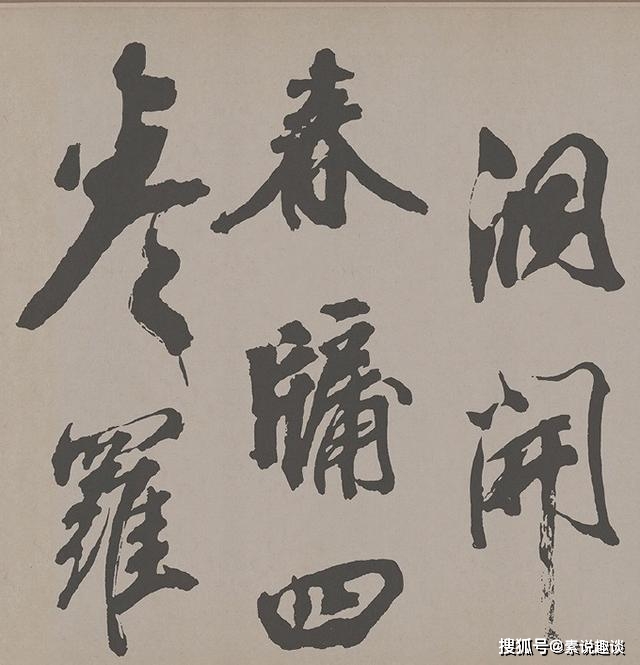 洞開
春牖四
卷羅
搜狐号@素说趣谈